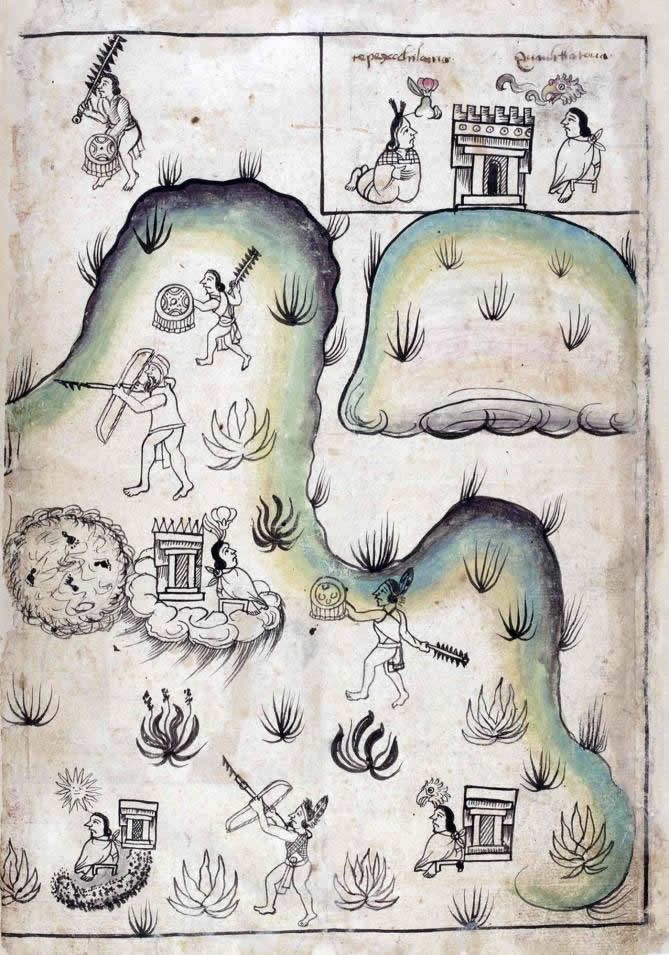 tepexochilama Quauhtlatoua